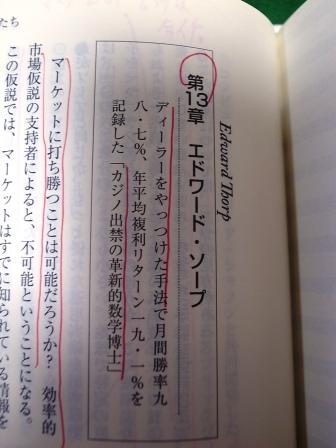 第13章 エドワード・ソープ
Edward Thorp
ディーラーをやっつけた手法で月間勝率九
八・七%、年平均複利リターン一九・一%を
記録した「カジノ出禁の革新的数学博士」
マーケットに打ち勝つことは可能だろうか? 効率的
市場仮説の支持者によると、不可能ということになる。
この仮説では、マーケットはすでに知られている情報を
たち